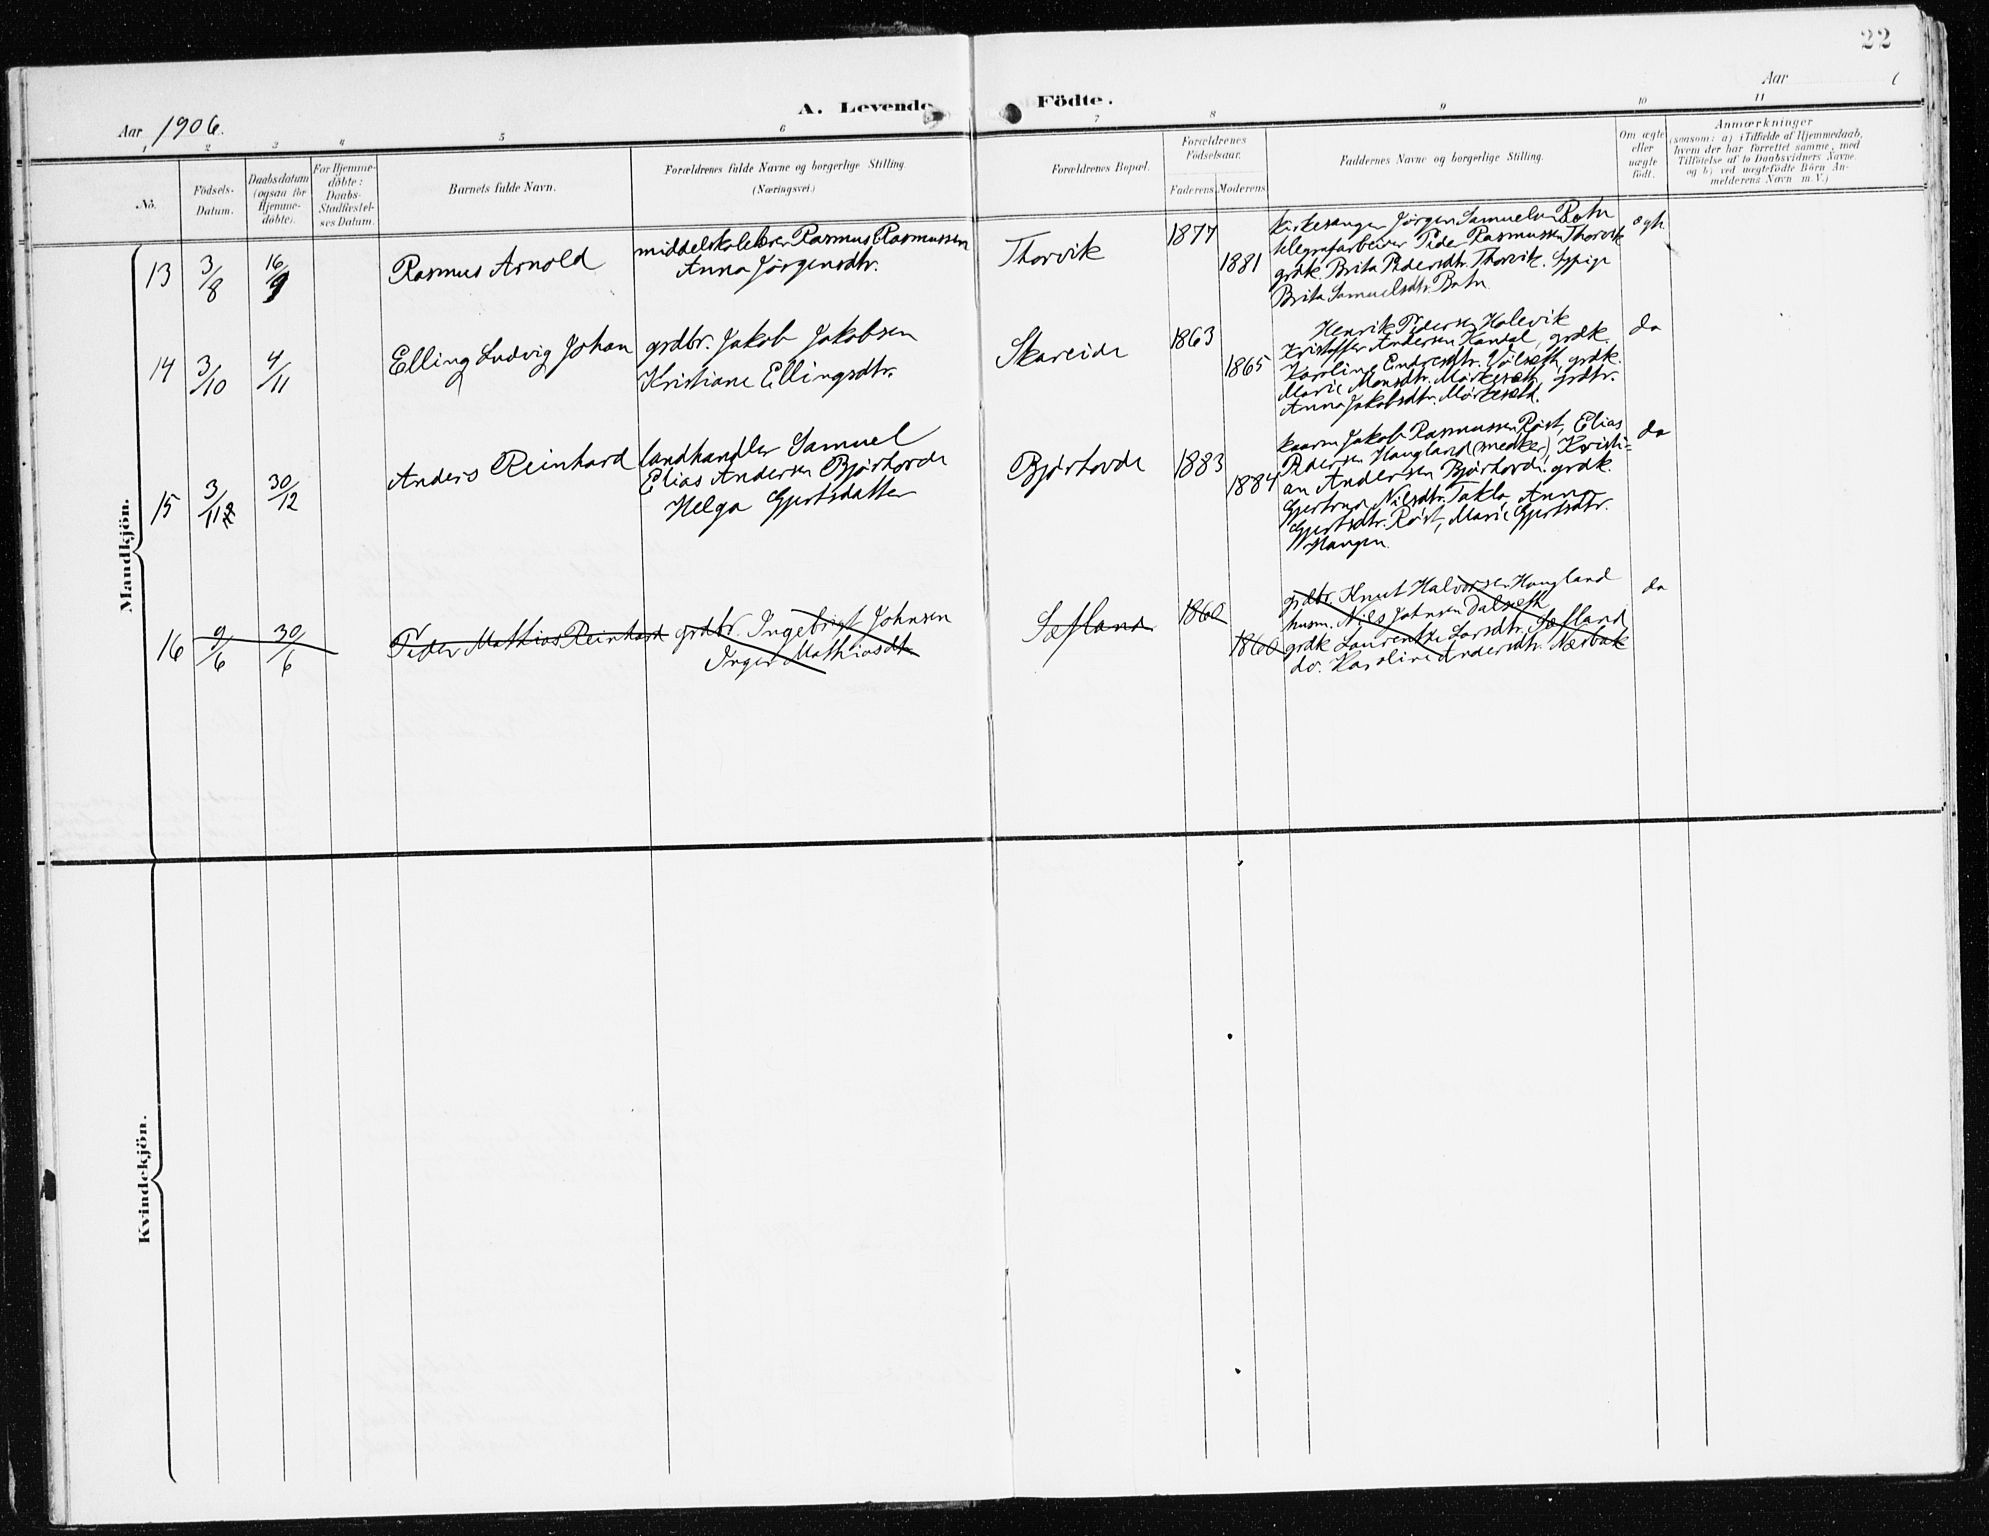 22
A. Levende Födte.
Aar 1906.
Aar
1 2 3 4 5 6 7 8 9 10 11
No.
Födsels-
Datum.
Daabsdatum
(ogsaa for
Hjemme-
döbte).
For Hjemme-
döbte:
Daabs-
Stadfæstel-
ses Datum.
Barnets fulde Navn.
Forældrenes fulde Navne og borgerlige Stilling.
(Næringsvei.)
Forældrenes Bopæl.
Forældrenes
Födselsaar.
Faderens Moderens
Faddernes Navne og borgerlige Stilling.
Om ægte
eller
uægte
födt.
Anmærkninger
(saasom: a) i Tilfælde af Hjemmedaab,
hvem der har forrettet samme, med
Tilföielse af to Daabsvidners Navne,
og b) ved uægtefödte Börn An-
melderens Navn m. V.)
Mandkjön.
13 3/8 16/9 Rasmus Arnold
middelskolelærer Rasmus Rasmussen
Anna Jörgensdtr.
Thorvik
1877
1881
kirkesanger Jörgen Samuelsen Batn
telegrafarbeider Peder Rasmussen Thorvik
grdk. Brita Pedersdtr. Thorvik.
Brita Samuelsdtr. Batn
ægte
14 3/10 4/11 Elling Ludvig Johan
grdbr. Jakob Jakobsen
Kristiane Ellingsdtr.
Skareide
1863
1865
Henrik Pedersen Holevik
Kristoffer Andersen Kandal, grdk.
Karoline Endresdtr. grdk.
Marie Monsdtr. Mörkeseth, grdtr.
Anna Jakobsdtr. Mörkeseth.
do
15 3/11 30/12 Anders Reinhard
landhandler Samuel
Elias Andersen Bjørhovde
Helga Gjertsdatter
Bjørhovde
1883
1884
kaarm Jakob Rasmussen Røst, Elias
Pedersen Haugland Kristi-
an Andersen Bjørhovde. grdk.
Gjertrud Nilsdtr. Takle, Anna
Gjertsdtr. Røst, Marie Gjertsdtr.
Haugen.
do
16 9/6 30/6 Peder Mathias Reinhard
grdbr. Ingebrigt Johnsen
Inger Mathiasdtr.
Sæfland
1860
1860
grdbr. Knut Halvorsen Haugland
husm. Nils Johnsen Dalseth
grdk Laurentze Larsdtr. Sæfland
do. Karoline Andersdtr. Næsbak
do
Kvindekjön.